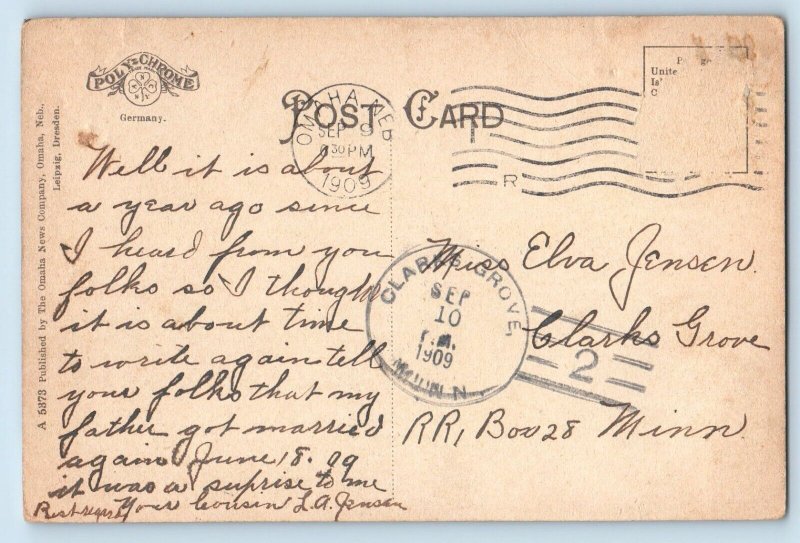 POLY-CHROME
Germany.
POST CARD
OMAHA, NEB
SEP 9
30 PM
1909
R
Unite
Is
C
A 5373 Published by The Omaha News Company, Omaha, Neb.,
Leipzig, Dresden.
Well it is about
a year ago since
I heard from you
folks so I thought
it is about time
to write again tell
your folks that my
father got married
again June 18. 09
it was a suprise to me
Your Cousin L.A. Jensen
Miss Elva Jensen.
Clarks Grove
RR1 Box 28 Minn.
CLARKS GROVE,
SEP
10
1909
MINN.
2